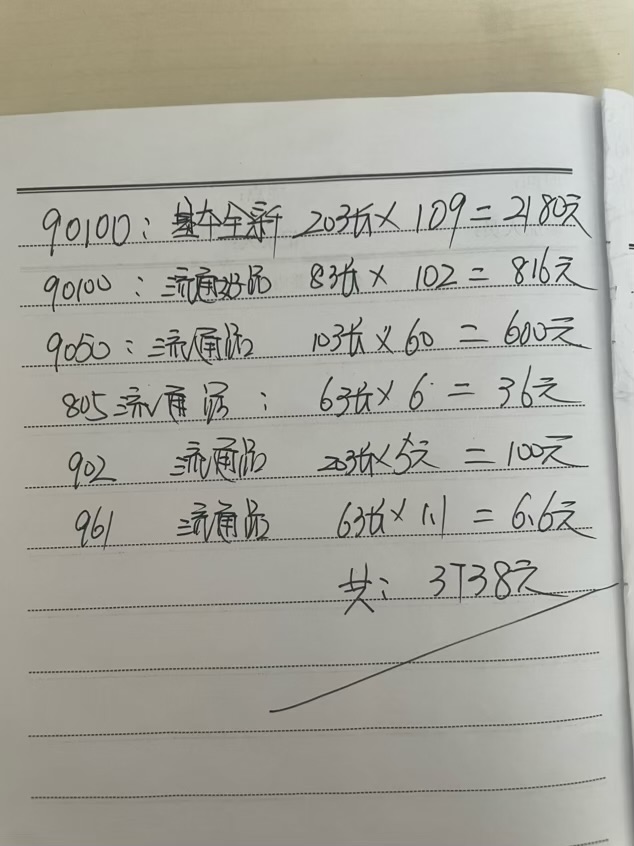 90100：基本全新 20张×109=2180元
90100：流通品 8张×102=816元
9050：流通品 10张×60=600元
805流通品：6张×6=36元
902 流通品 20张×5元=100元
961 流通品 6张×1.1=6.6元
共：3738元